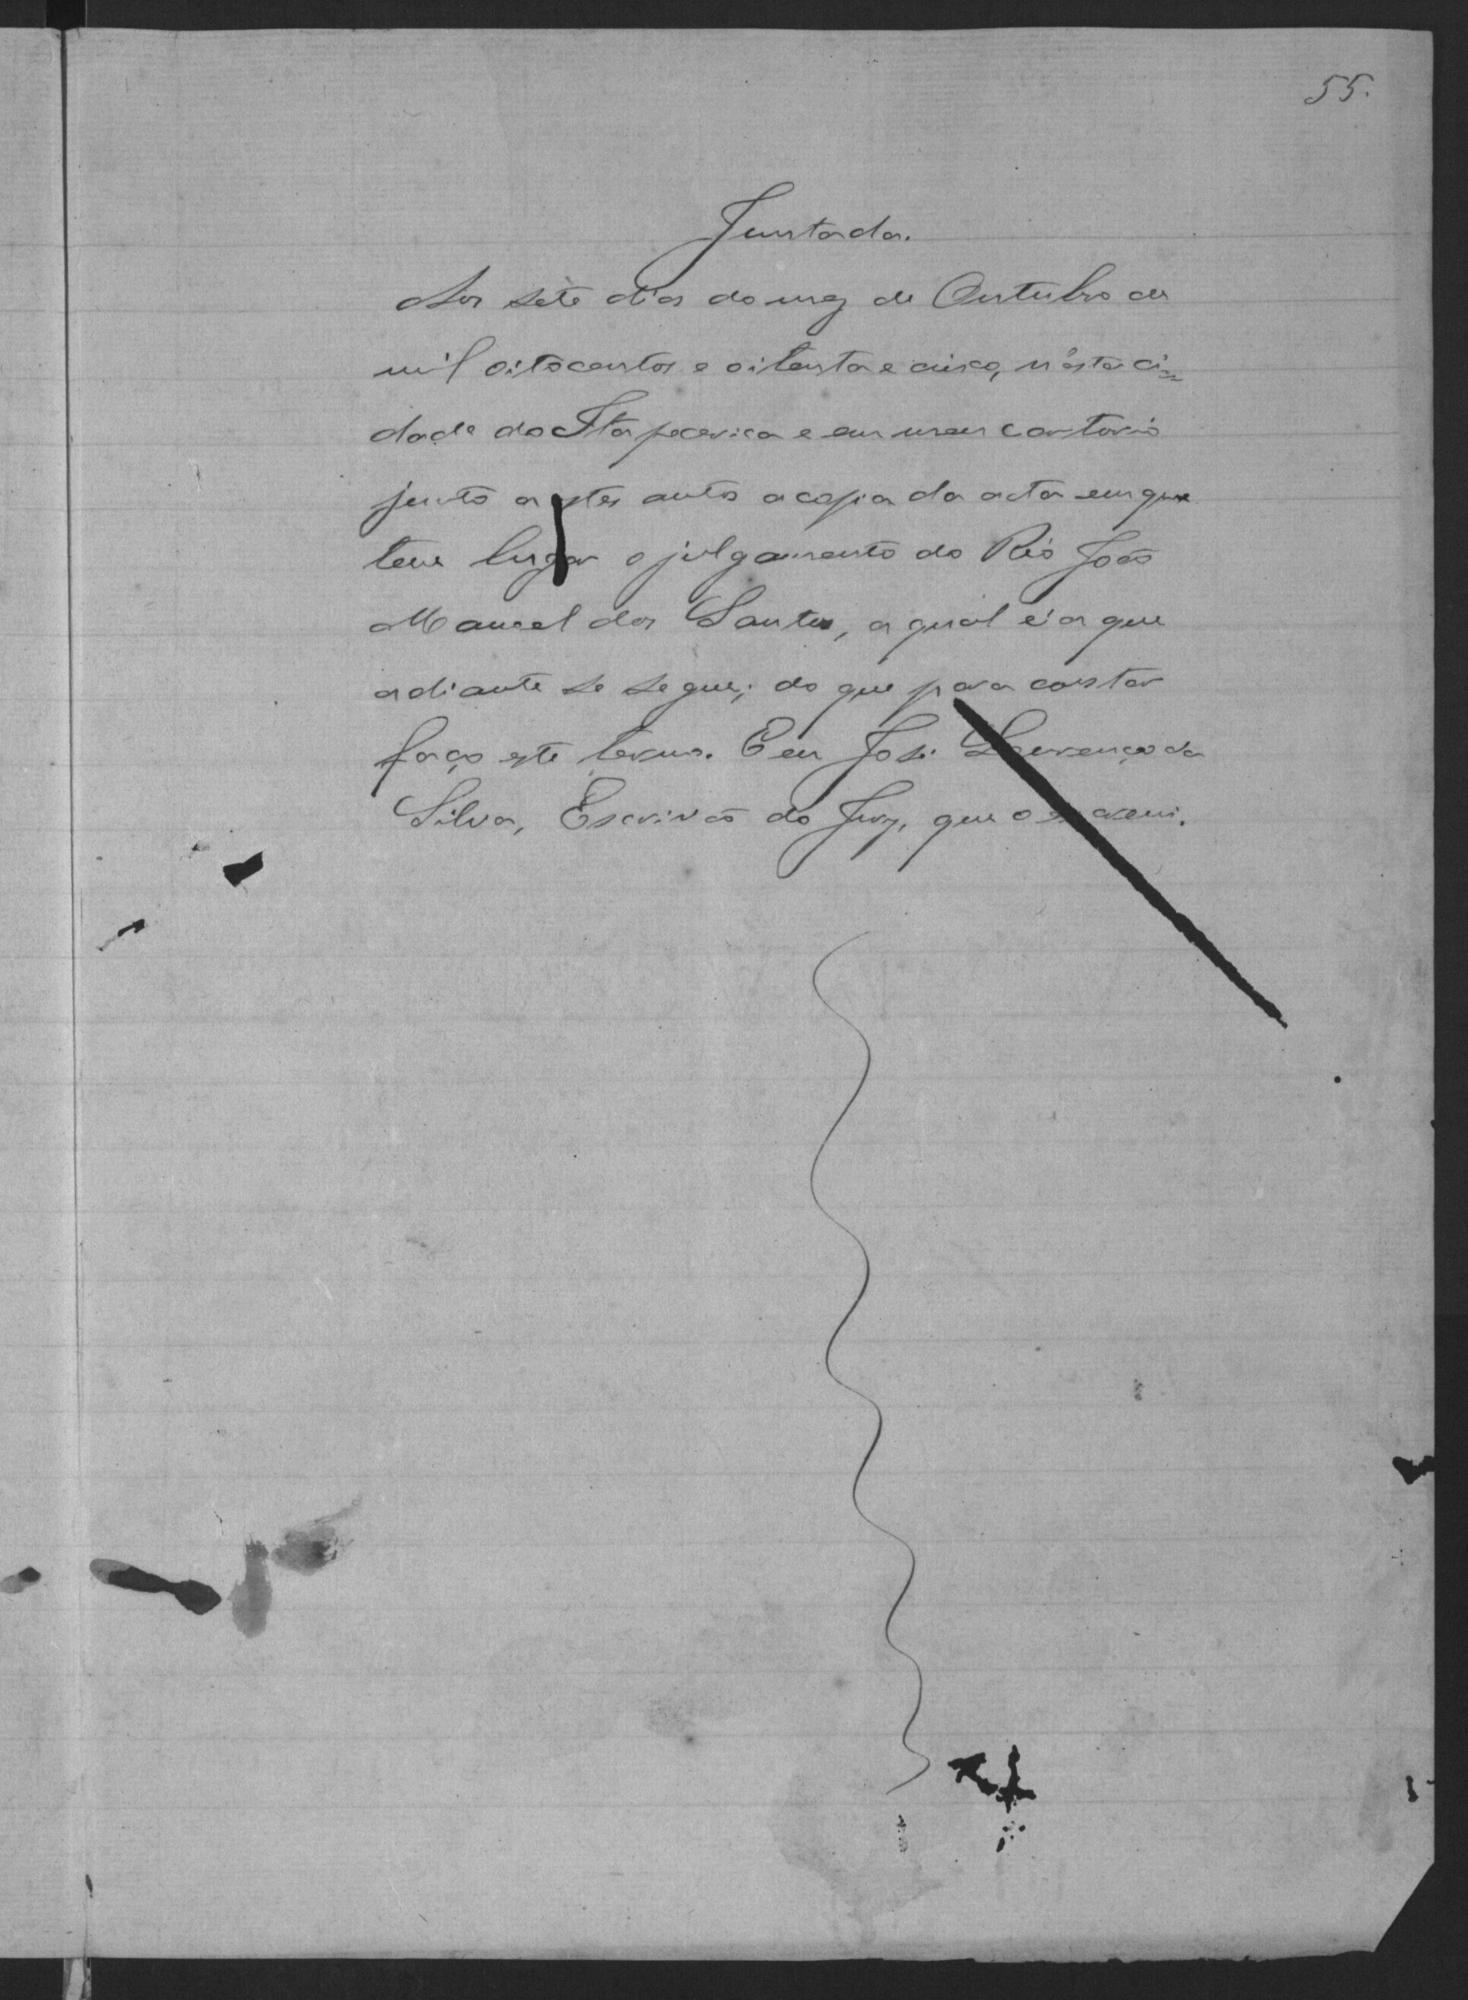 55.
Juntada.
Aos sete dias do mez de Outubro de
mil oitocentos e oitenta e cinco, n'esta ci-
dade de Itapecerica e em meu cartorio
junto a estes autos a copia da acta em que
teve lugar o julgamento do Réo João
Manoel dos Santos, a qual é a que
adiante se segue; do que para constar
faço este termo. Eu José Lourenço da
Silva, Escrivão do Jury, que o escrevi.